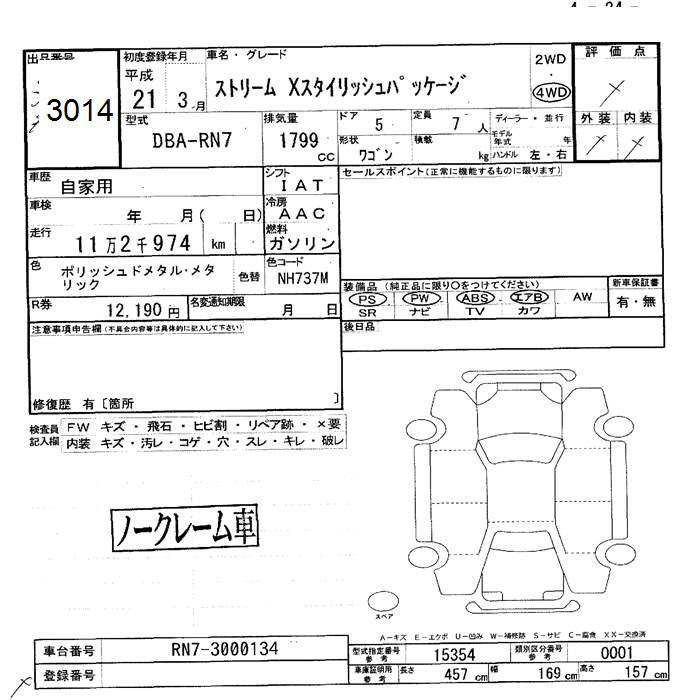 出品番号
3014
初度登録年月
平成
21 3月
車名・グレード
ストリーム Xスタイリッシュパッケージ
2WD
・
4WD
評価点
外装 内装
型式
DBA-RN7
排気量
1799
cc
ドア 5
定員 7 人
形状 ワゴン
積載 kg
ディーラー・並行
モデル年式 年
ハンドル 左・右
車歴
自家用
シフト
IAT
車検
年 月( 日)
冷房
AAC
走行
11万2千974 km
燃料
ガソリン
色
ポリッシュドメタル・メタリック
色替
色コード
NH737M
R券
12,190円
名変通知期限
月 日
セールスポイント(正常に機能するものに限ります)
装備品(純正品に限り○をつけてください)
PS PW ABS エアB AW
SR ナビ TV カワ
新車保証書
有・無
後日品
注意事項申告欄(不具合内容等は具体的に記入して下さい)
修復歴 有〔箇所 〕
検査員記入欄
FW キズ・飛石・ヒビ割・リペア跡・×要
内装 キズ・汚レ・コゲ・穴・スレ・キレ・破レ
ノークレーム車
スペア
A-キズ E-エクボ U-凹み W-補修跡 S-サビ C-腐食 XX-交換済
車台番号
RN7-3000134
登録番号
型式指定番号
参考
15354
類別区分番号
参考
0001
車庫証明用
参考
長さ 457 cm
幅 169 cm
高さ 157 cm